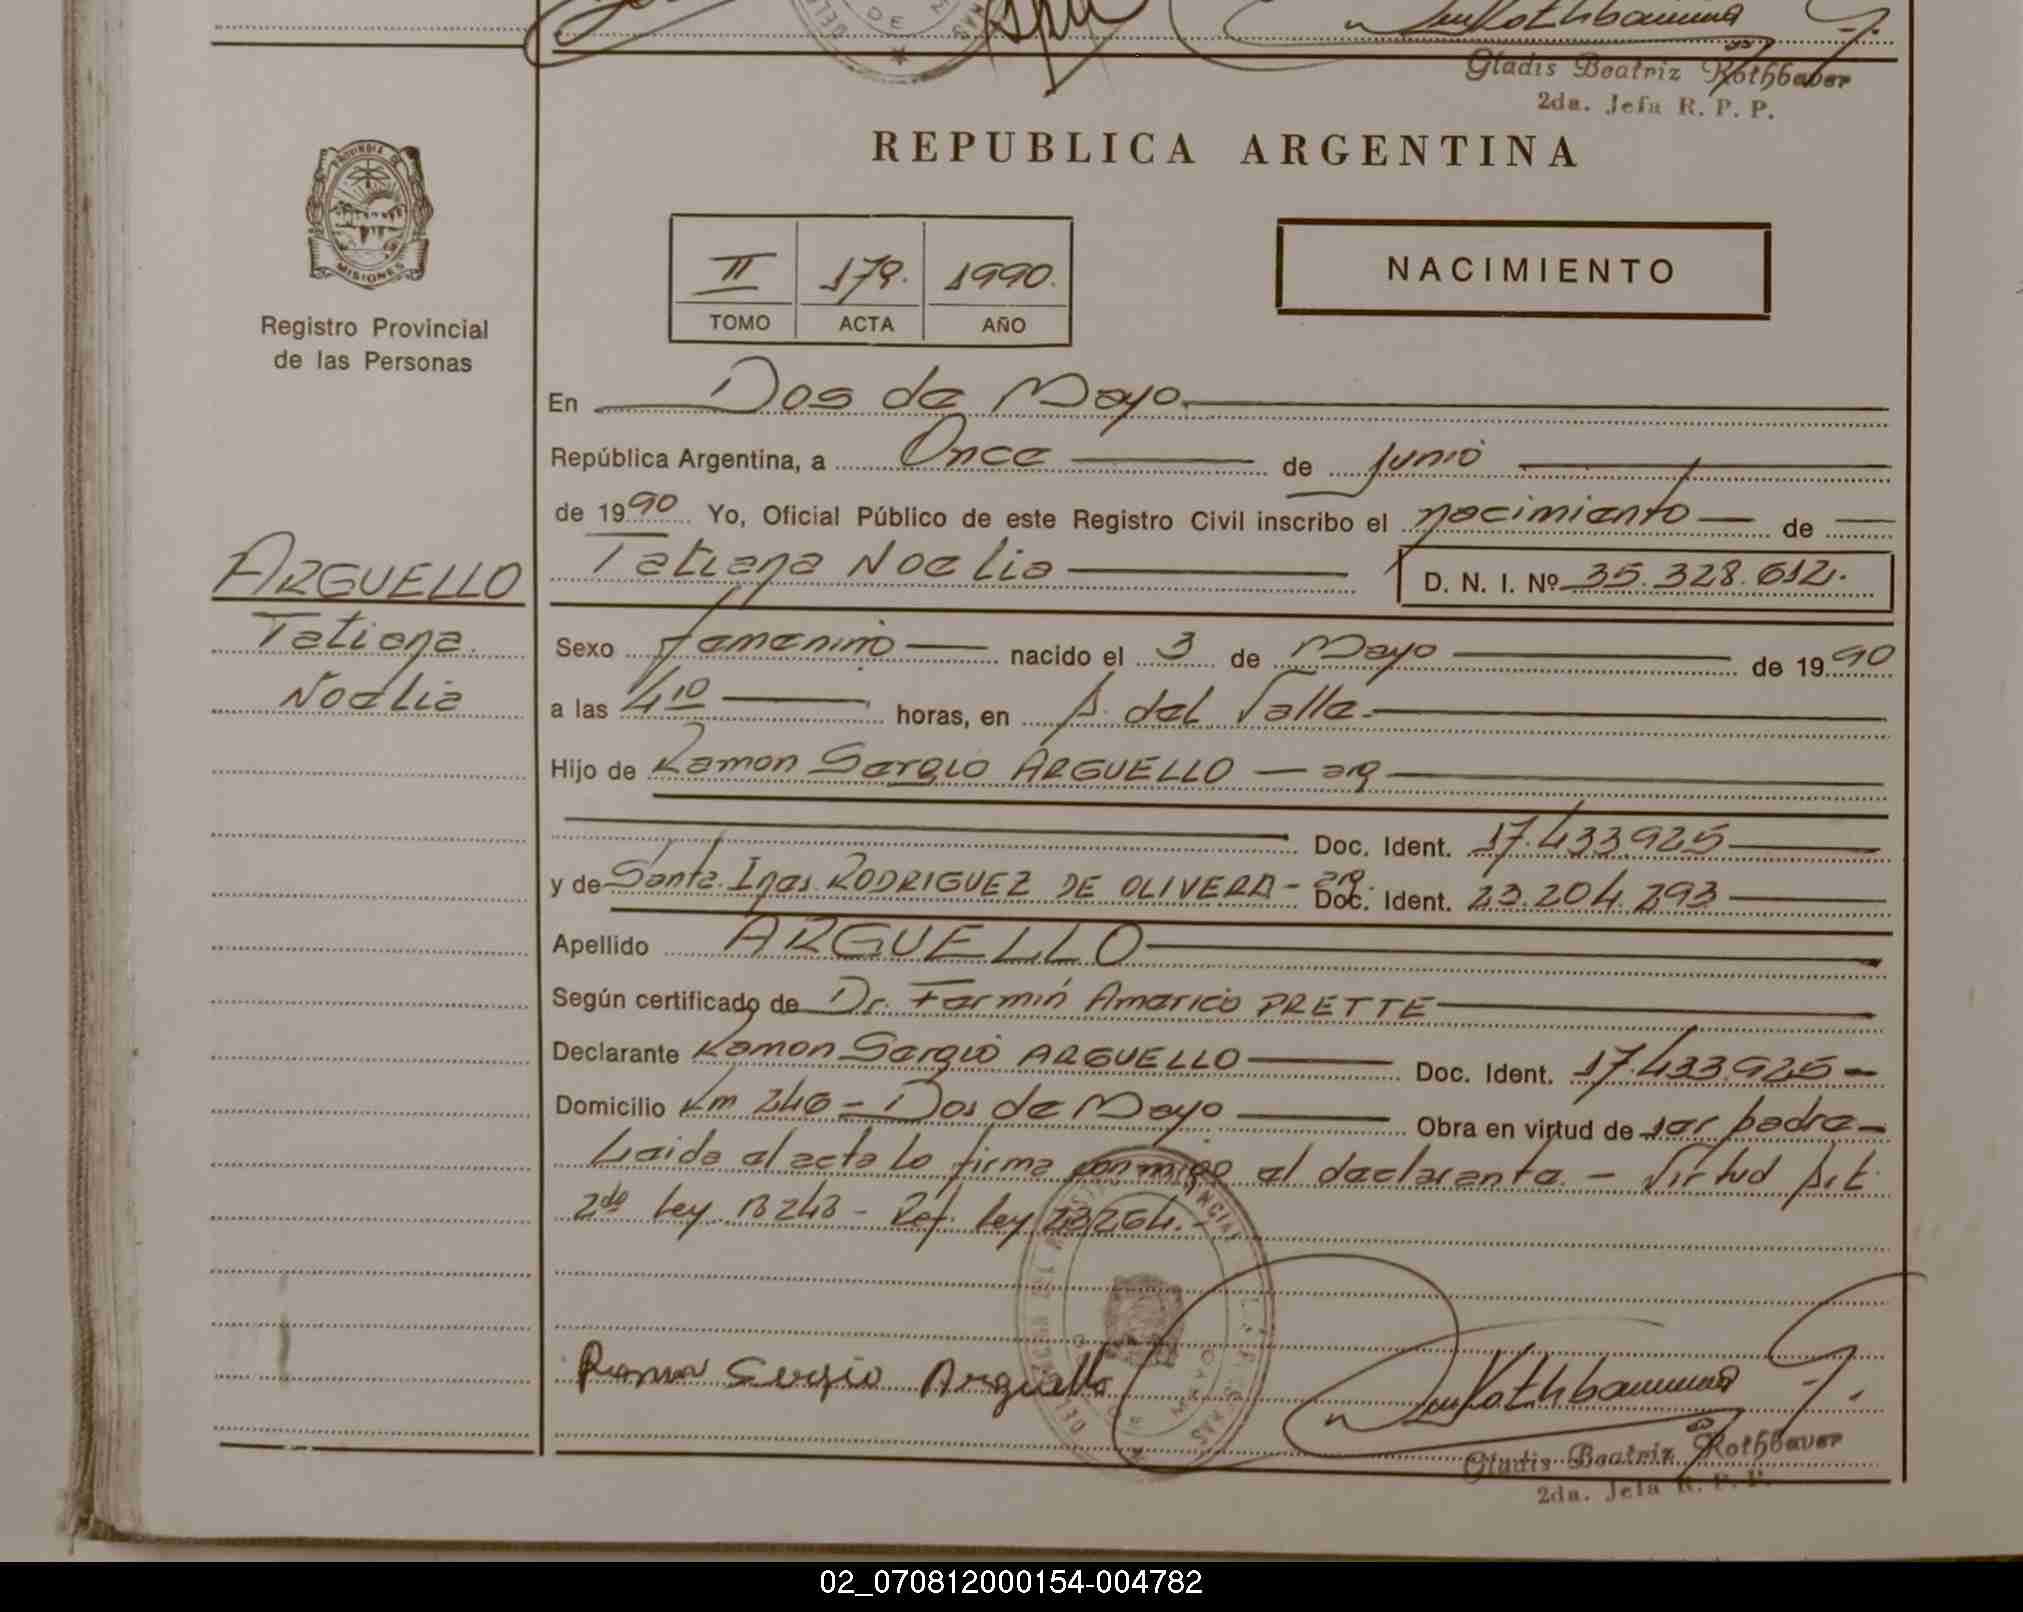 Gladis Beatriz Rothbauer
2da. Jefa R. P. P.
REPUBLICA ARGENTINA
PROVINCIA DE
MISIONES
Registro Provincial
de las Personas
II 178. 1990.
TOMO ACTA AÑO
NACIMIENTO
En Dos de Mayo
República Argentina, a Once de Junio
de 1990 Yo, Oficial Público de este Registro Civil inscribo el nacimiento de
Tatiana Noelia D. N. I. Nº 35.328.612.
ARGUELLO
Tatiana
Noelia
Sexo femenino nacido el 3 de Mayo de 1990
a las 4 10 horas, en A. del Valle
Hijo de Ramon Sergio ARGUELLO — arg
Doc. Ident. 17.433.925
y de Santa Ines RODRIGUEZ DE OLIVERA - arg. Doc. Ident. 23.204.293
Apellido ARGUELLO
Según certificado de Dr. Fermín Americo PRETTE
Declarante Ramon Sergio ARGUELLO Doc. Ident. 17.433.925
Domicilio Km 246 - Dos de Mayo Obra en virtud de ser padre
Leida el acta lo firma conmigo el declarante. - Virtud Art
2do Ley 18248 - Ref. Ley 23264.-
Ramon Sergio Arguello
Gladis Beatriz Rothbauer
2da. Jefa R. P. P.
02_070812000154-004782